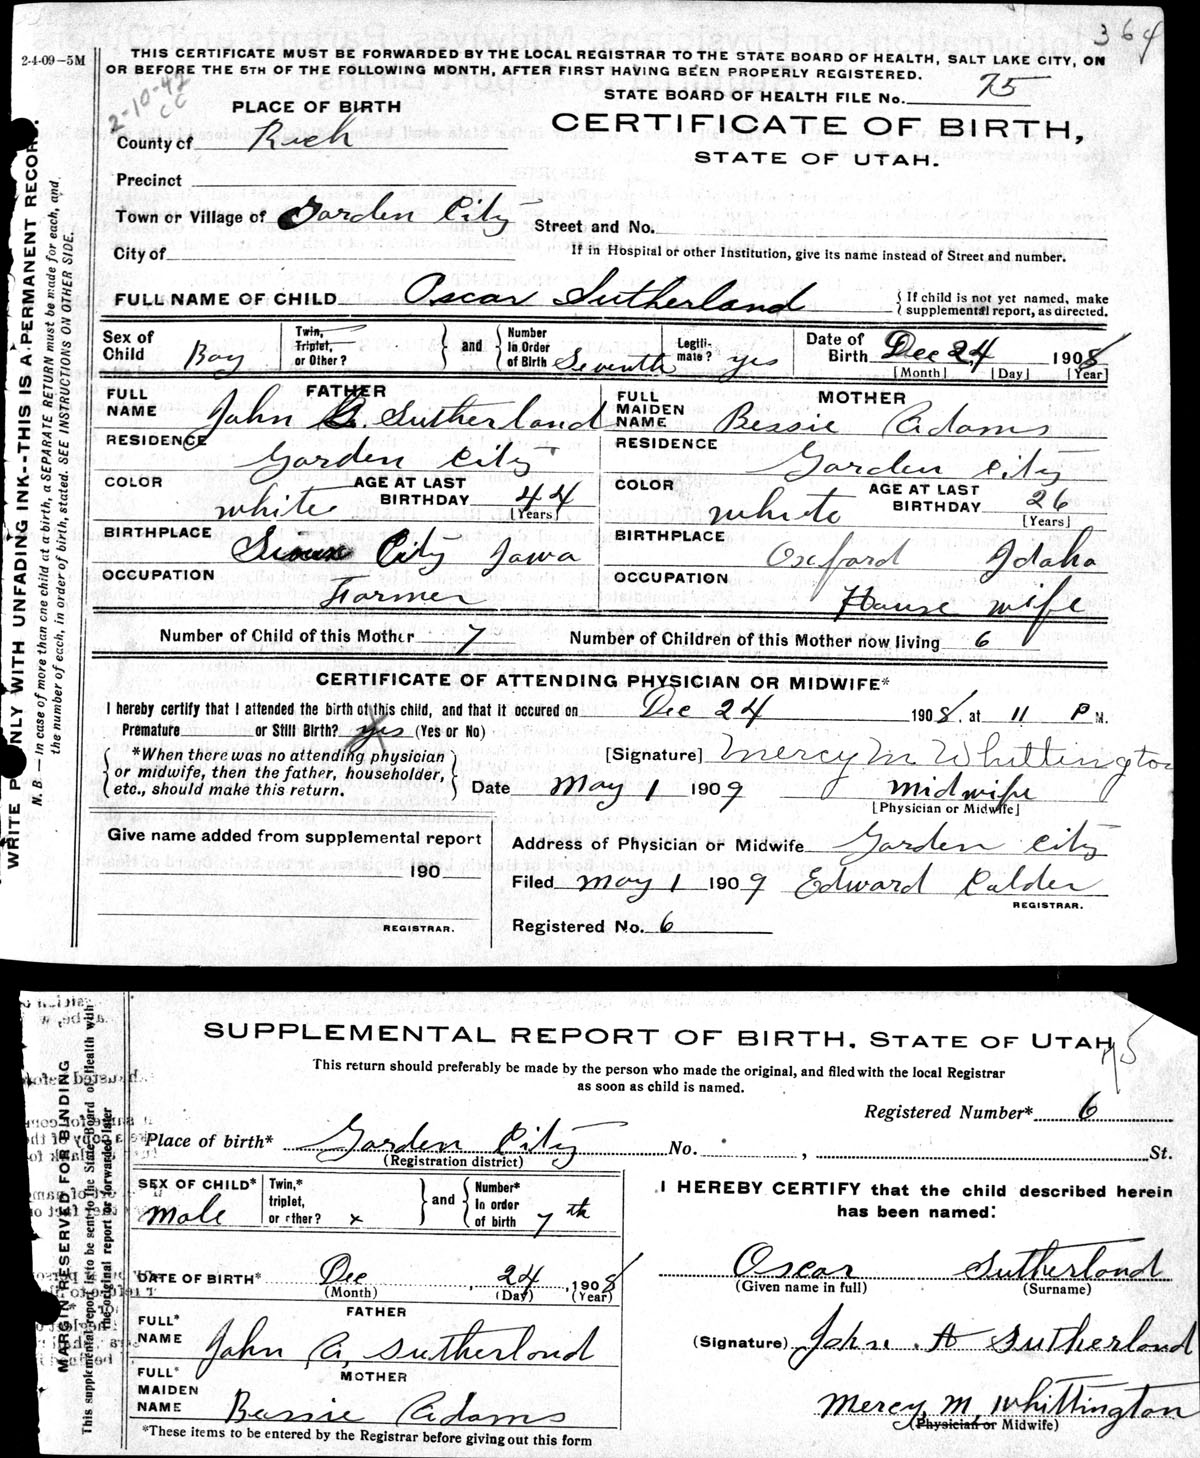 364
2-4-09-5M
THIS CERTIFICATE MUST BE FORWARDED BY THE LOCAL REGISTRAR TO THE STATE BOARD OF HEALTH, SALT LAKE CITY, ON
OR BEFORE THE 5TH OF THE FOLLOWING MONTH, AFTER FIRST HAVING BEEN PROPERLY REGISTERED.
2-10-42
CC
STATE BOARD OF HEALTH FILE No. 75
PLACE OF BIRTH
CERTIFICATE OF BIRTH,
STATE OF UTAH.
County of Rich
Precinct
Town or Village of Garden City
Street and No.
City of
If in Hospital or other Institution, give its name instead of Street and number.
FULL NAME OF CHILD Oscar Sutherland { If child is not yet named, make supplemental report, as directed.
Sex of Child Boy Twin, Triplet, or Other? } and { Number In Order of Birth Seventh Legiti-mate? yes Date of Birth Dec 24 1908
[Month] [Day] [Year]
FATHER
MOTHER
FULL NAME John A. Sutherland
FULL MAIDEN NAME Bessie Adams
RESIDENCE Garden City
RESIDENCE Garden City
COLOR white AGE AT LAST BIRTHDAY 44 [Years]
COLOR white AGE AT LAST BIRTHDAY 26 [Years]
BIRTHPLACE Sioux City Iowa
BIRTHPLACE Oxford Idaho
OCCUPATION Farmer
OCCUPATION House wife
Number of Child of this Mother 7 Number of Children of this Mother now living 6
CERTIFICATE OF ATTENDING PHYSICIAN OR MIDWIFE*
I hereby certify that I attended the birth of this child, and that it occured on Dec 24 1908, at 11 P M.
Premature or Still Birth? yes (Yes or No)
*When there was no attending physician
or midwife, then the father, householder,
etc., should make this return.
[Signature] Mercy M. Whittington
Date May 1 1909 midwife
[Physician or Midwife]
Give name added from supplemental report
190
REGISTRAR.
Address of Physician or Midwife Garden City
Filed May 1 1909 Edward Calder
REGISTRAR.
Registered No. 6
WRITE ONLY WITH UNFADING INK--THIS IS A PERMANENT RECORD.
N. B.—In case of more than one child at a birth, a SEPARATE RETURN must be made for each, and
the number of each, in order of birth, stated. SEE INSTRUCTIONS ON OTHER SIDE.
SUPPLEMENTAL REPORT OF BIRTH, STATE OF UTAH
75
This return should preferably be made by the person who made the original, and filed with the local Registrar
as soon as child is named.
Registered Number* 6
Place of birth* Garden City No. , St.
(Registration district)
SEX OF CHILD* Male Twin,* triplet, or other? x } and { Number* In order of birth 7th
I HEREBY CERTIFY that the child described herein
has been named:
DATE OF BIRTH* Dec , 24 , 1908
(Month) (Day) (Year)
Oscar Sutherland
(Given name in full) (Surname)
FATHER
FULL* NAME John A. Sutherland
(Signature) John A Sutherland
MOTHER
FULL* MAIDEN NAME Bessie Adams
Mercy M. Whittington
(Physician or Midwife)
*These items to be entered by the Registrar before giving out this form
MARGIN RESERVED FOR BINDING
This supplemental report is to be sent to the State Board of Health with
the original report or forwarded later